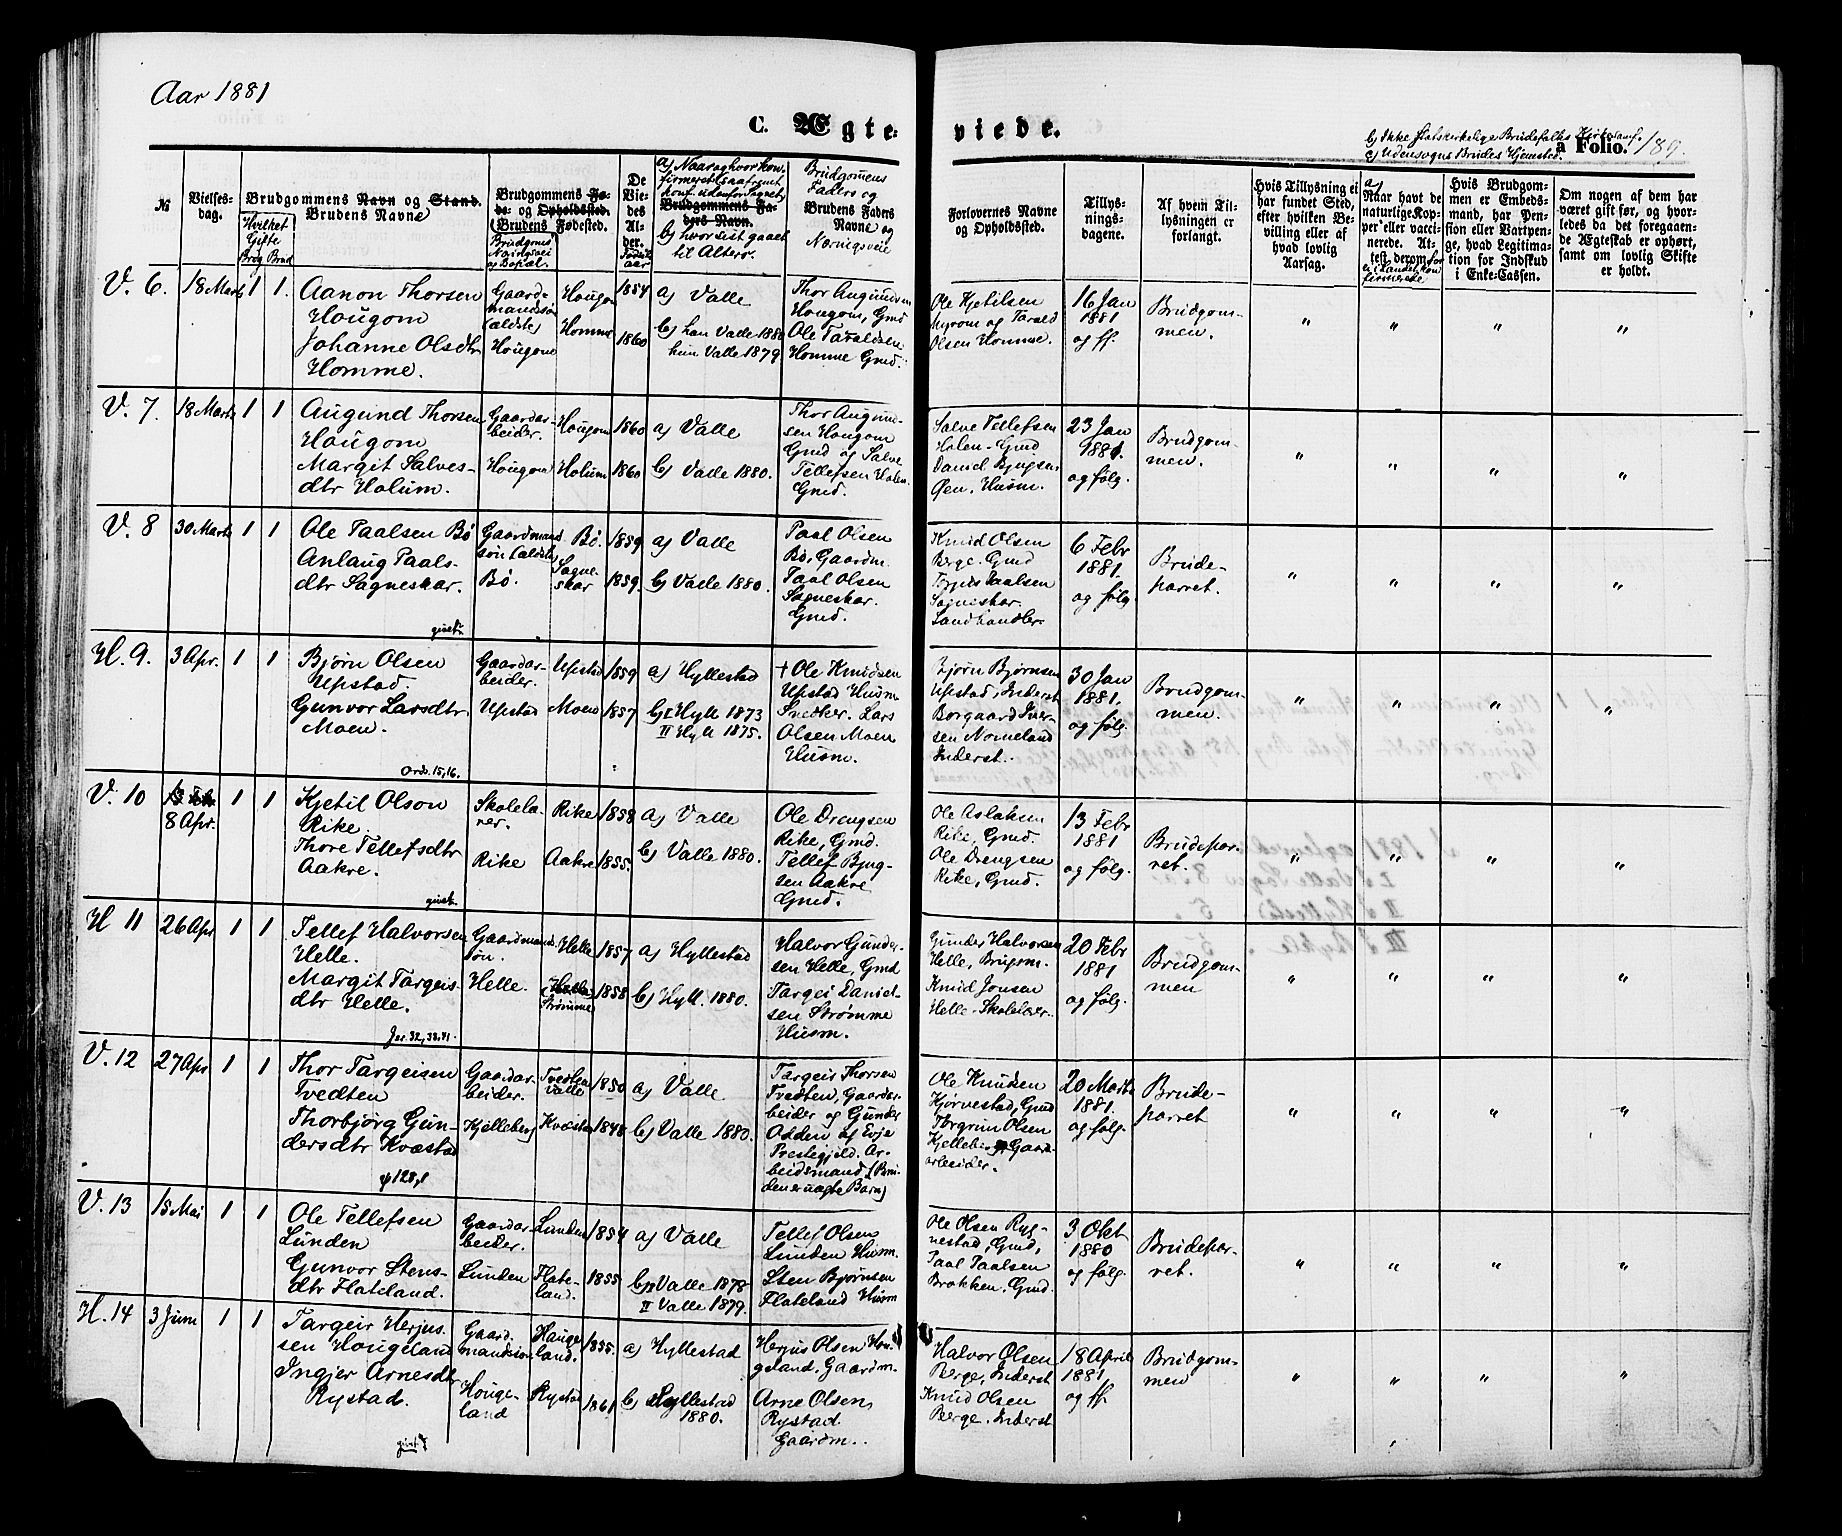 Aar 1881
C. Ægte-
viede.
b) Ikke statskirkelige Brudefolks
c) Udensogns Brudes Hjemsted.
a Folio. 189.
№
Vielses-
dag.
Brudgommens Navn og Stand.
Brudens Navne
Hvilket
Gifte
Brg Brud
Brudgommens Fø-
de- og Opholdssted.
Brudens Fødested.
Brudgoms
Næringsvei
og Bopæl.
De
Vie-
des
Al-
der.
Fødsels
aar
a) Naar og hvor kon-
firmeret
Brudgommens Fa-
ders Navn.
b) hvor sist gaaet
til Alters.
Brudgomens
Faders og
Brudens Faders
Navne og
Næringsveie
Forlovernes Navne
og Opholdssted.
Tillys-
nings-
dagene.
Af hvem Til-
lysningen er
forlangt.
Hvis Tillysning ei
har fundet Sted,
efter hvilken Be-
villing eller af
hvad lovlig
Aarsag.
a)
Naar havt de
naturlige Kop-
per eller vacci-
nerede. At-
test derom for
ei i Landet kon
firmerede
Hvis Brudgom-
men er Embeds-
mand, har Pen-
sion eller Vartpen-
ge, hvad Legitima-
tion for Indskud
i Enke-Cassen.
Om nogen af dem har
været gift før, og hvor-
ledes da det foregaaen-
de Ægteskab er ophørt,
samt om lovlig Skifte
er holdt.
V. 6. 18 Marts 1 1. Aanon Thorsen
Hougom
Johanne Olsdtr
Homme.
Gaard-
mandssøn
(ældste)
Hougom
Hougom
Homme
1854
1860
a) Valle
b) han Valle 1880
hun Valle 1879
Thor Augundsen
Hougom, Gmd
Ole Taraldsen
Homme Gmd.
Ole Kjetilsen
Myrom og Tarald
Olsen Homme.
16 Jan
1881
og ff.
Brudgom-
men.
" " " "
V. 7. 18 Marts 1 1 Augund Thorsen
Hougom
Margit Salves-
dtr Holum.
Gaardar-
beider.
Hougom
Hougom
Holum
1860
1860
a) Valle
b) Valle 1880.
Thor Augund-
sen Hougom
Gmd og Salve
Tellefsen Holen
Gmd.
Salve Tellefsen
Holen. Gmd
Daniel Bjugsen
Øen, Husm.
23 Jan
1881.
og følg.
Brudgom-
men.
" " " "
V. 8 30 Marts 1 1 Ole Paalsen Bø
Anlaug Paals-
dtr Sagneskar.
Gaardmands
søn (ældste)
Bø.
Bø.
Sagne-
skar
1859
1859.
a) Valle
b) Valle 1880.
Paal Olsen
Bø, Gaardm.
Paal Olsen
Sagneskar.
Gmd.
Knud Olsen
Berge. Gmd
Torjus Paalsen
Sagneskar.
Landhandler.
6 Febr
1881.
og følg.
Brude-
parret.
" " " "
H. 9. 3 Apr. 1 1 Bjørn Olsen
Upstad.
Gunvor Larsdtr.
Moen.
Gaardar-
beider.
Upstad
Upstad
Moen
1859
1857
a) Hyllestad
b) I Hyll 1873
II Hyll 1875.
+ Ole Knudsen
Upstad Husm
Snedker. Lars
Olsen Moen
Husm.
Bjørn Bjørnsen
Upstad, Inderst
Borgaard Iver-
sen Nomeland
Inderst.
30 Jan
1881.
og følg.
Brudgom-
men.
" " " "
Ords. 15,16.
V. 10 8 Apr. 1 1 Kjetil Olson
Rike.
Thore Tellefsdtr
Aakre.
Skolelæ-
rer.
Rike
Rike
Aakre
1858
1855.
a) Valle
b) Valle 1880.
Ole Drengsen
Rike, Gmd.
Tellef Bjug-
sen Aakre
Gmd.
Ole Aslaksen
Rike, Gmd.
Ole Drengsen
Rike, Gmd.
13 Febr
1881
og følg.
Brudepar-
ret.
" " " "
H 11 26 Apr 1 1 Tellef Halvorsen
Helle.
Margit Targeis-
dtr Helle.
Gaardmands
søn.
Helle.
Helle
Helle
Strømme
1857
1858
a) Hyllestad
b) Hyll. 1880.
Halvor Gunder-
sen Helle, Gmd
Targei Daniel-
sen Strømme
Husm.
Gunder Halvorsen
Helle, Brugsm.
Knud Jonsen
Helle. Skolelær.
20 Febr
1881
og følg.
Brudgom-
men
" " " "
Jer. 32, 38-41.
V. 12 27 Apr 1 1 Thor Targeisen
Tvedten
Thorbjørg Gun-
dersdtr Kvæstad
Gaardar-
beider.
Kjelleberg
Tvedten
Valle
Kvæstad
1850
1848
a) Valle
b) Valle 1880.
Targeir Thorsen
Tvedten, Gaardar-
beider og Gunder
Odden af Evje
Prestegjeld. Ar-
beidsmand. (Bru-
den er uægte Barn)
Ole Knudsen
Kjørvestad, Gmd
Torgrim Olsen
Kjelleberg Gaard-
arbeider.
20 Marts
1881.
og følg.
Brude-
parret
" " " "
ψ 128,1
V. 13 15 Mai 1 1 Ole Tellefsen
Lunden
Gunvor Stens-
dtr Flateland.
Gaardar-
beider.
Lunden
Lunden
Flate-
land.
1854
1855
a) Valle
b) I Valle 1878
II Valle 1879.
Tellef Olsen
Lunden Husm.
Sten Bjørnsen
Flateland Husm
Ole Olsen Ryg-
nestad, Gmd,
Paal Paalsen
Brokken, Gmd.
3 Okt
1880
og følg.
Brudepar-
ret.
" " " "
H. 14 3 Juni 1 1 Targeir Herjus-
sen Hougeland
Ingjer Arnesdtr
Rystad.
Gaard.
mandssøn
Houge-
land
Hauge
land.
Rystad
1855.
1861
a) Hyllestad
b) Hyllestad
1880.
Herjus Olsen Hou-
geland, Gaardm.
Arne Olsen
Rystad
Gaardm.
Halvor Olsen
Berge, Inderst
Knud Olsen
Berge. Inderst
18 April
1881
og ff.
Brudgom-
men
" " " "